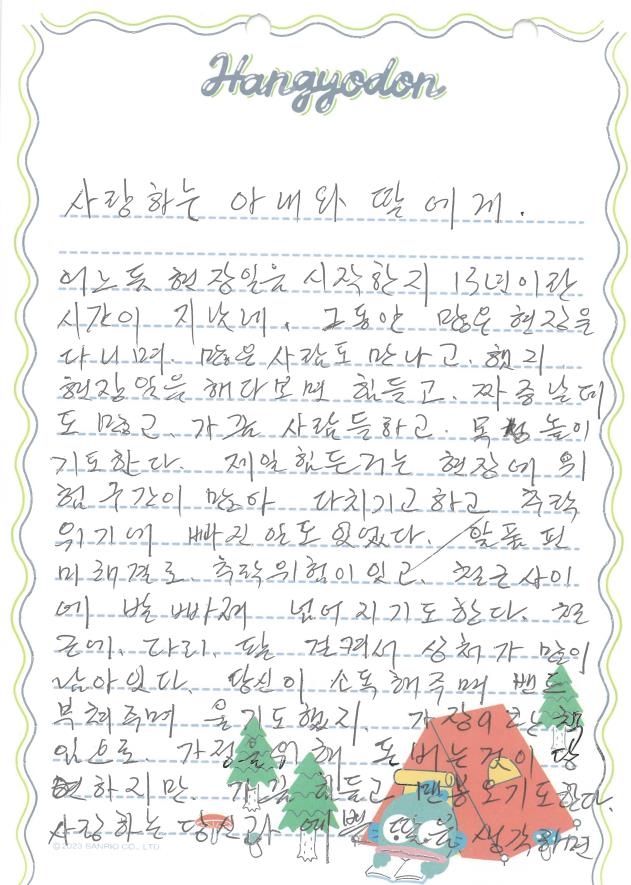 Hangyodon
사랑하는 아내와 딸에게.
어느듯 현장일을 시작한지 13년이란
시간이 지났네. 그동안 많은 현장을
다니며. 많은 사람도 만나고. 했지
현장일을 해다보면 힘들고. 짜증날때
도 많고. 가끔 사람들하고. 목 높이
기도한다. 제일힘든거는 현장에 위
험구간이 많아 다치기고하고 추락
위기에 빠진 안도 있었다. 알폼 핀
미해결로. 추락위험이 있고. 철근사이
에 발빠져 넘어지기도한다. 철
근에. 다리. 팔 걸려서 상처가 많이
남아있다. 당신이 소독해주며 밴드
부쳐주며 울기도했지. 가장이란 책
임으로. 가정을위해 돈버는것이 당
현하지만. 가끔 힘들고 맨붕오기도한다.
사랑하는 당신과 예쁜 딸을 생각하면
©2023 SANRIO CO., LTD